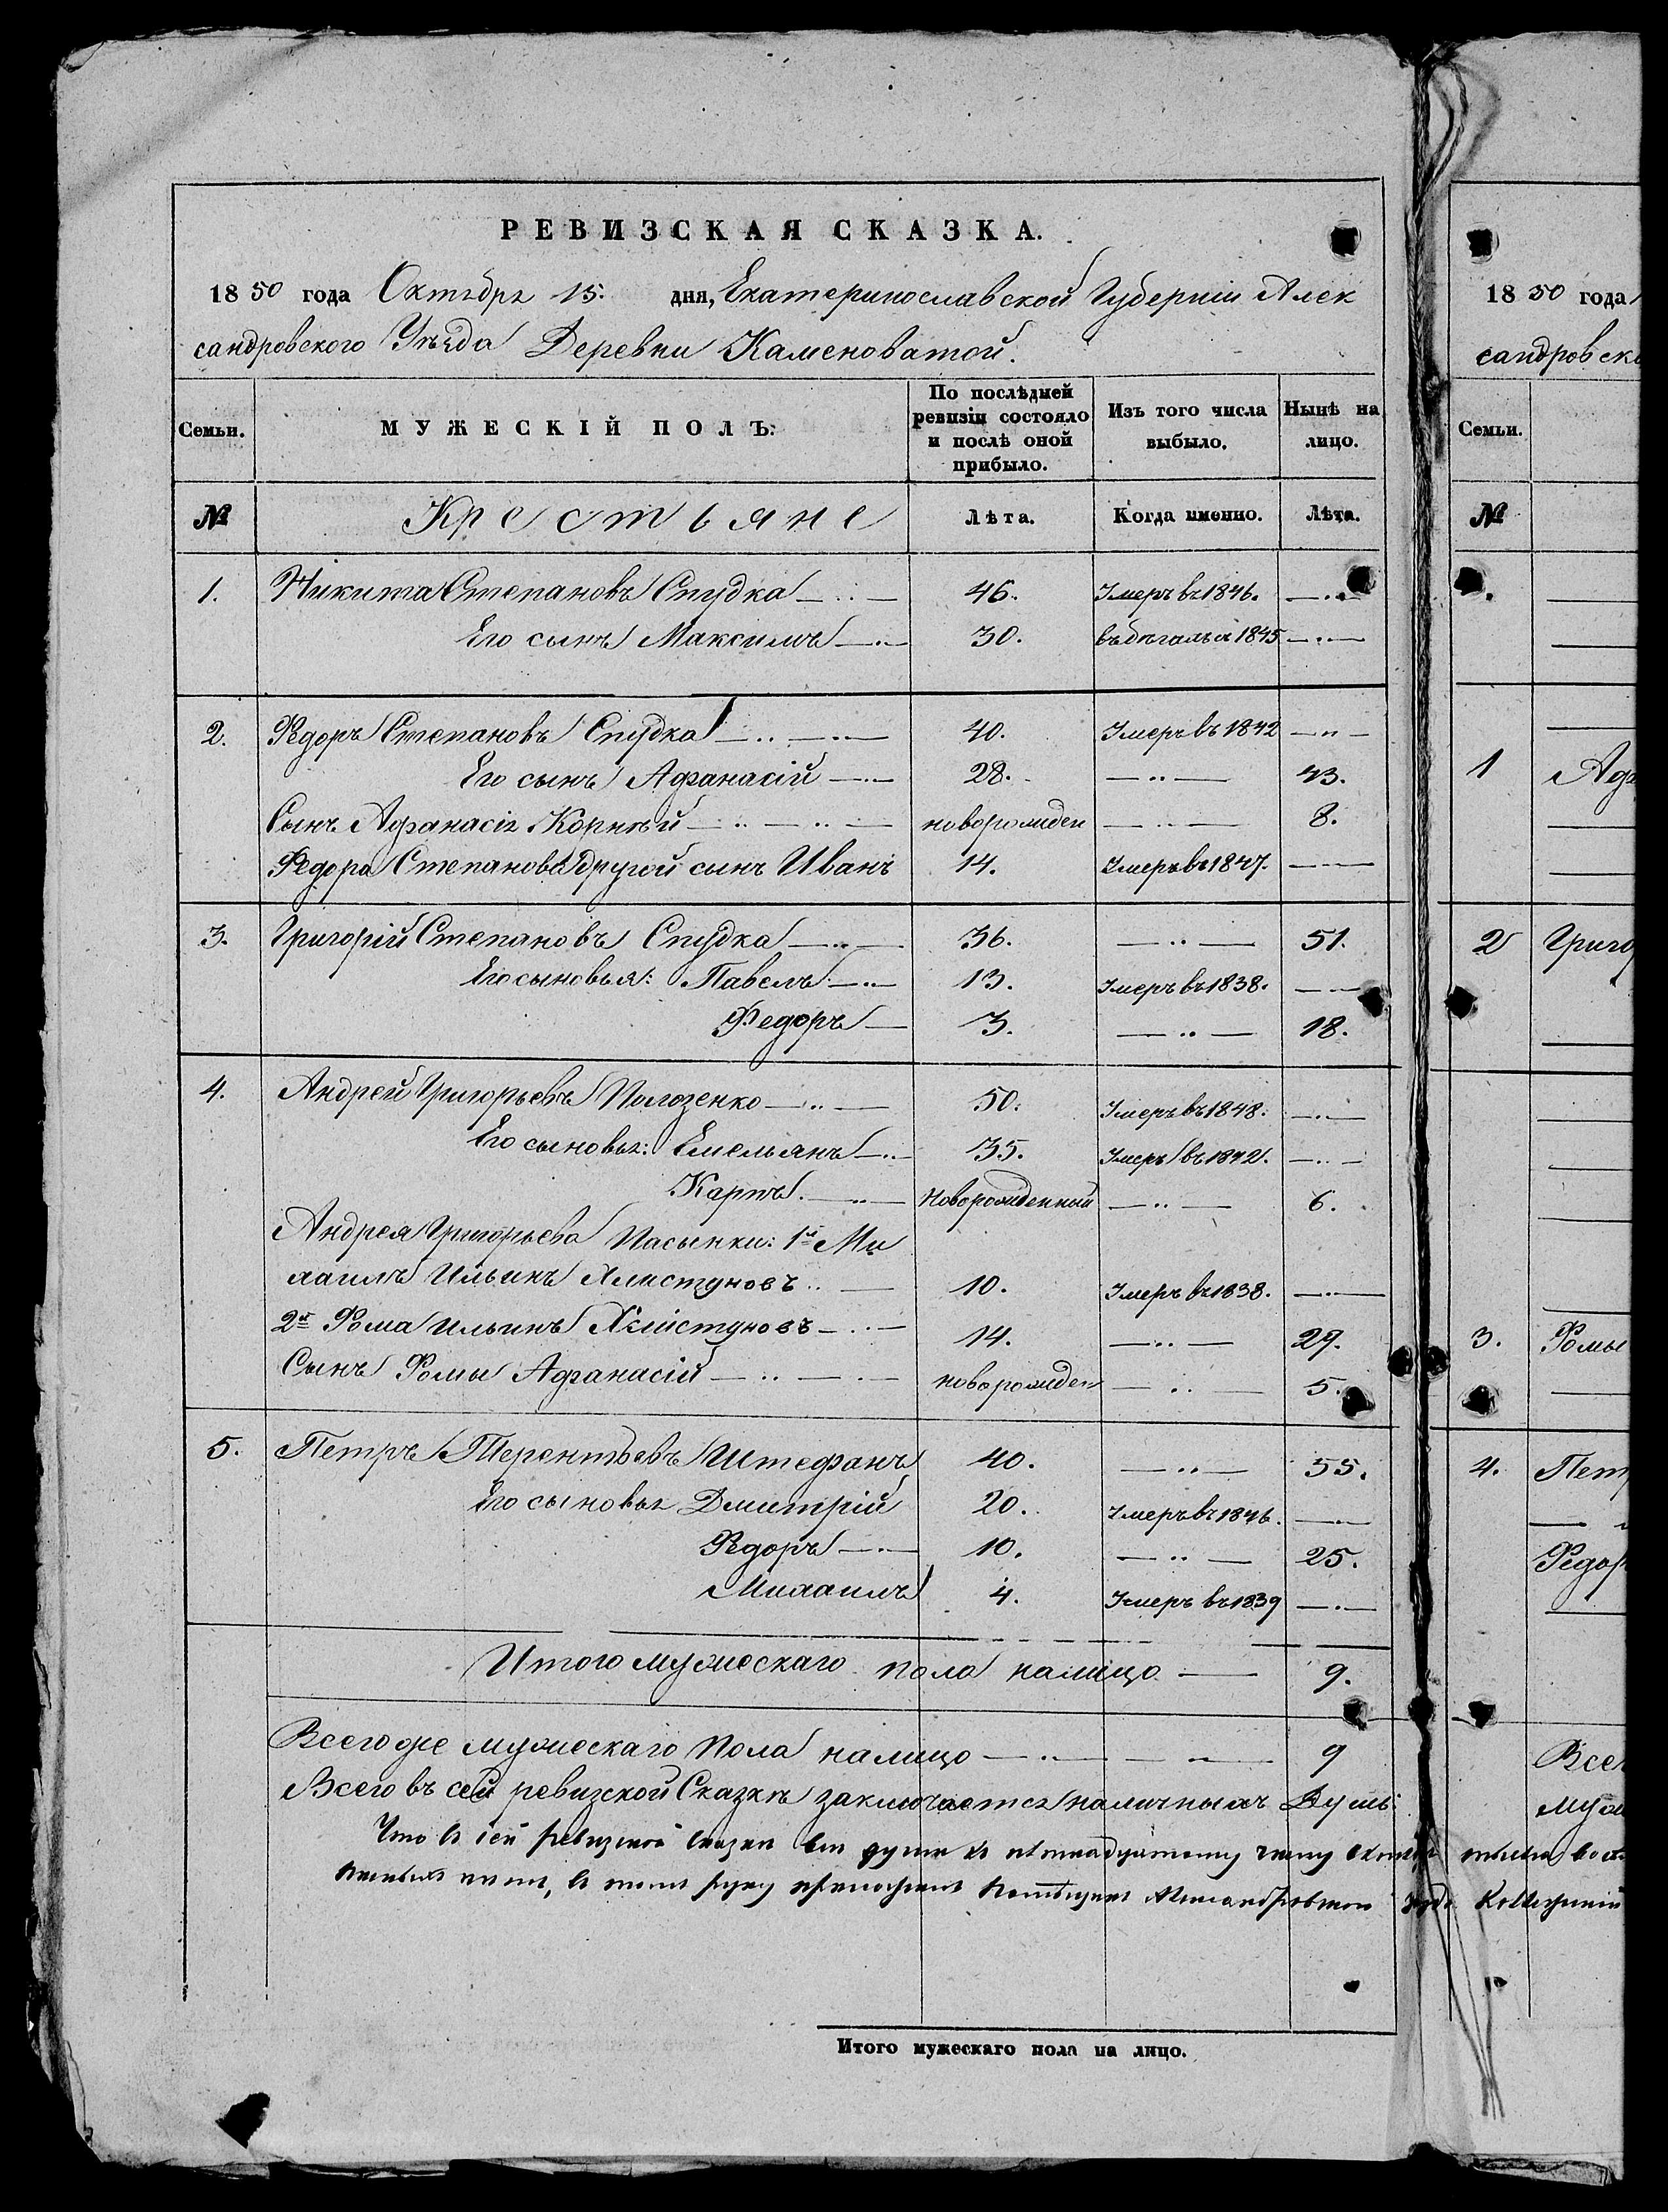 РЕВИЗСКАЯ СКАЗКА.
1850 года Октября 15. дня, Екатеринославской Губерніи Алек
сандровского Уѣзда Деревни Каменоватой.
Семьи. МУЖЕСКІЙ ПОЛЪ: По послѣдней ревизіи состояло и послѣ оной прибыло. Изъ того числа выбыло. Нынѣ на лицо.
№ Крестьяне Лѣта. Когда именно. Лѣта.
1. Никита Степановъ Спудка 46. Умеръ въ 1846.
Его сынъ Максимъ 30. въ бѣгахъ 1845
2. Федоръ Степановъ Спудка 40. Умеръ въ 1842
Его сынъ Афанасій 28. 43.
Сынъ Афанасія Корнѣй новорожден 8.
Федора Степанова другой сынъ Иванъ 14. Умеръ въ 1847.
3. Григорій Степановъ Спудка 36. 51.
Его сыновья: Павелъ 13. Умеръ въ 1838.
Федоръ 3. 18.
4. Андрей Григорьевъ Полозенко 50. Умеръ въ 1848.
Его сыновья: Емельянъ 35. Умеръ въ 1842.
Карпъ. Новорожденный 6.
Андрея Григорьева Пасынки: 1й Ми
хаилъ Ильинъ Хлистуновъ 10. Умеръ въ 1838.
2й Фома Ильинъ Хлистуновъ 14. 29.
Сынъ Фомы Афанасій новорожден 5.
5. Петръ Терентьевъ Штефанъ 40. 55.
Его сыновья Дмитрій 20. Умеръ въ 1846.
Федоръ 10. 25.
Михаилъ 4. Умеръ въ 1839
Итого мужескаго пола налицо 9.
Всего же мужескаго Пола налицо 9
Всего въ сей ревизской Сказкѣ заключается наличныхъ Душъ:
Что в сей ревизской сказки все души
Итого мужескаго пола на лицо.
1850 года
сандровск
Семьи.
№
1 Афа
2 Григо
3. Фомы
4. Пет
Федор
Все
муж